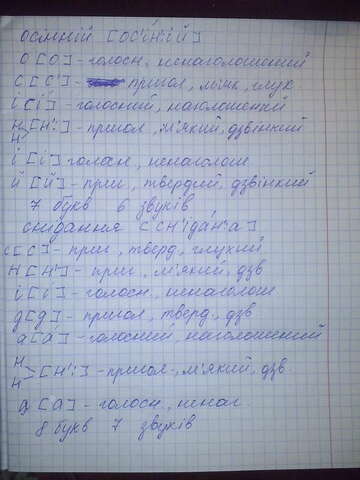 осінній [ос'íн':ій]
о [о] - голосн, ненаголошений
с [с'] - пригол, м'як, глух.
і [і] - голосний, наголошений
н
н [н':] - пригол, м'який, дзвінкий
і [і] голосн, ненаголош
й [й] - приг, твердий, дзвінкий
7 букв 6 звуків
снідання [сн'ідáн':а]
с [с] - приг, тверд, глухий
н [н'] - приг, м'який, дзв
і [і] - голосн, ненаголош
д [д] - пригол, тверд, дзв
а [а] - голосний, наголошений
н
н > [н':] - пригол, м'який, дзв.
я [а] - голосн, ненаг.
8 букв 7 звуків